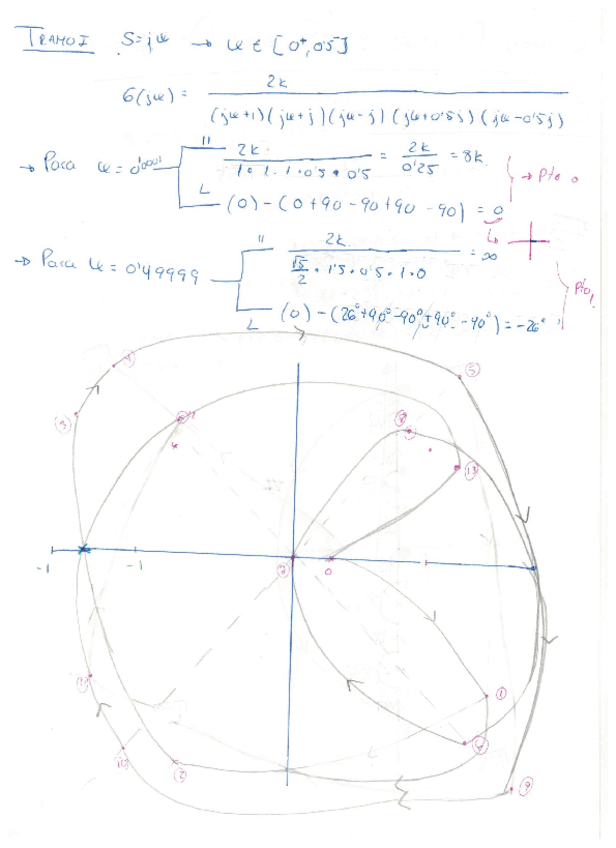 TRAMO I S=jω → ω ∈ [0⁺, 0'5]
G(jω) = 2k / (jω+1)(jω+j)(jω-j)(jω+0'5j)(jω-0'5j)
→ Para ω = 0'0001 || 2k / 1·1·1·0'5·0'5 = 2k / 0'25 = 8k → Pto 0
∟ (0) - (0+90-90+90-90) = 0
→ Para ω = 0'49999 || 2k / √5/2 · 1'5 · 0'5 · 1 · 0 = ∞
∟ (0) - (26°+90°-90°+90°-90°) = -26° Pto 1
4
5
3
8
13
-1
-1
0
1
11
10
2
9